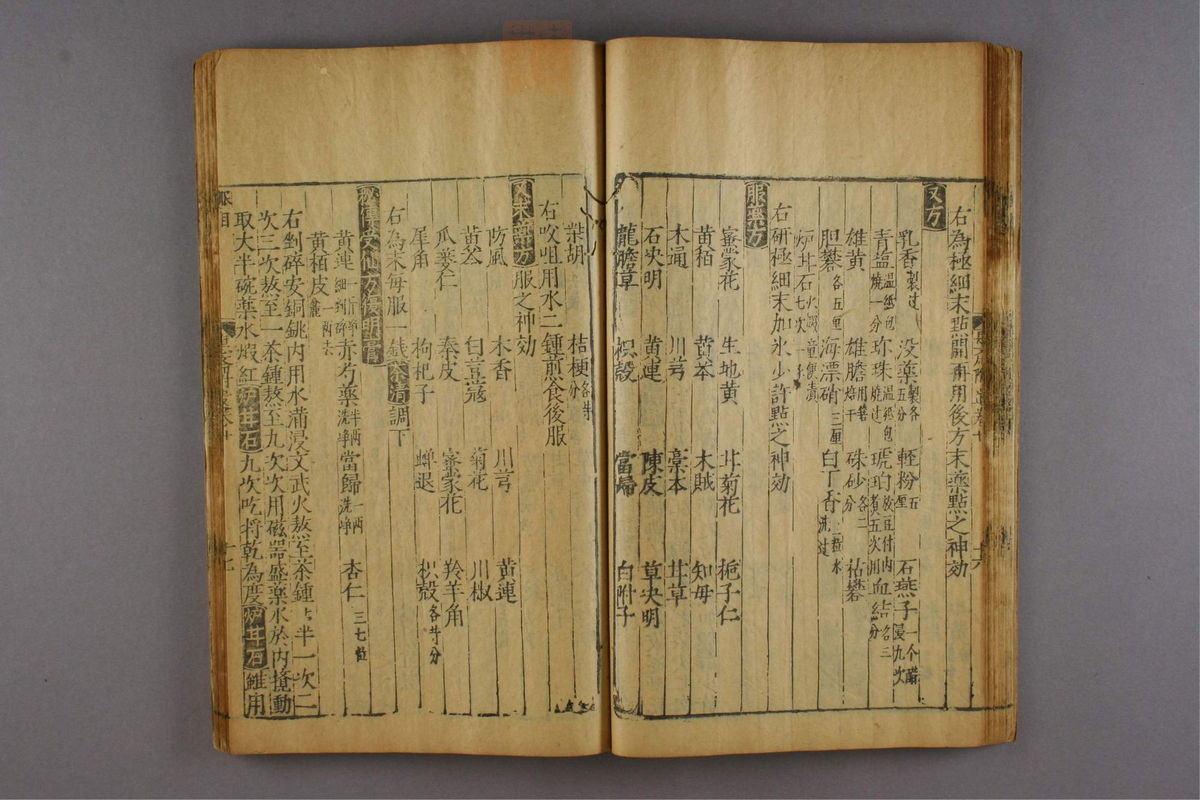 右為極細末點開再用後方末藥點之神効
又方
乳香製过 没藥製各五分 輕粉五厘 石燕子一个醋浸九次
青塩温紙包燒一分 珎珠温紙包燒过 琥珀放豆付内煮五次用 血結各三分
雄黄 雄膽用箬焙干 硃砂各二分 枯礬
胆礬各五厘 海漂硝三厘 白丁香 水洗过
炉甘石火煆七次 童便漬
右研極細末加氷少許點之神効
服藥方
蜜蒙花 生地黄 甘菊花 梔子仁
黄栢 黄芩 木賊 知母
木通 川芎 藁本 甘草
石决明 黄連 陳皮 草决明
龍膽草 枳殻 當歸 白附子
柴胡 桔梗各半分
右㕮咀用水二鍾煎食後服
又末藥方服之神効
防風 木香 川芎 黄連
黄芩 白荳蔻 菊花 川椒
瓜蔞仁 秦皮 蜜蒙花 羚羊角
犀角 枸杞子 蟬退 枳殻各廿分
右為末每服一錢茶清調下
秘傳受仙方緩明膏
黄連 赤芍藥半両洗净 當歸一両洗净 杏仁三七粒
黄栢皮一両去麄
右剉碎安銅銚内用水滿浸文武火熬至茶鍾 半一次二
次三次熬至一茶鍾熬至九次次用磁器盛藥水於内攪動
取大半碗藥水煆紅炉甘石九次吃将乾為度炉甘石雖用
眼目